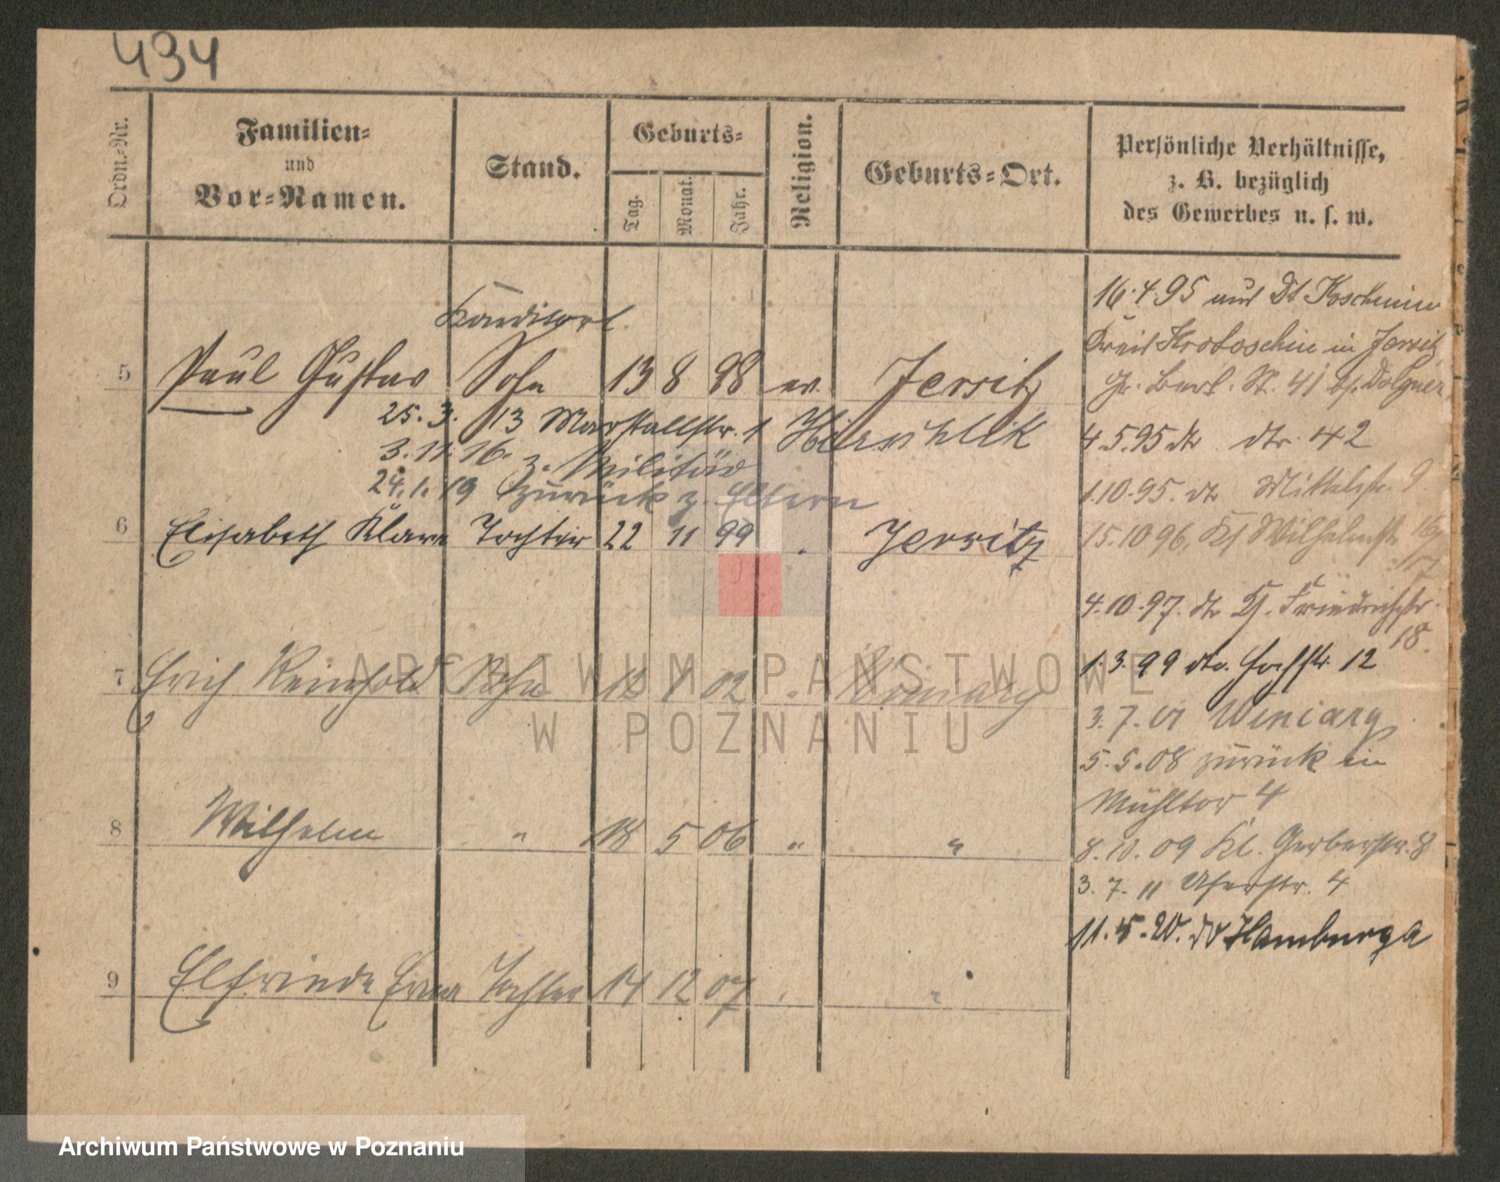 434
Ordn.-Nr.
Familien-
und
Vor-Namen.
Stand.
Geburts-
Tag.
Monat.
Jahr.
Religion.
Geburts-Ort.
Persönliche Verhältnisse,
z. B. bezüglich
des Gewerbes u. s. w.
5 Paul Gustav Sohn 13 8 98 ev. Jersitz
25. 3. 13 Marstallstr. 1
3. 11. 16. z. Militär
24. 1. 19 zurück z. Eltern
6 Elisabeth Klara Tochter 22 11 99 Jersitz
7 Erich Reinhold Sohn 1 02 Winiary
8 Wilhelm " 18 5 06 " "
9 Elfriede Erna Tochter 14 12 07
16.4.95 aus Koschmin
Kreis Krotoschin in Jersitz
Gr. Berl. St. 41
4.5.95 dto 42
1.10.95. Mittelstr. 9
15.10.96. Wilhelmstr.
17
4.10.97. Friedrichstr.
18.
1.3.99 dto. Hochstr. 12
3.7.01 Winiary
5.5.08 zurück in
Mühltor 4
8.10.09 Kl. Gerberstr. 8
3.7.11 Uferstr. 4
11.5.20. Hamburg
ARCHIWUM PAŃSTWOWE
W POZNANIU
Archiwum Państwowe w Poznaniu